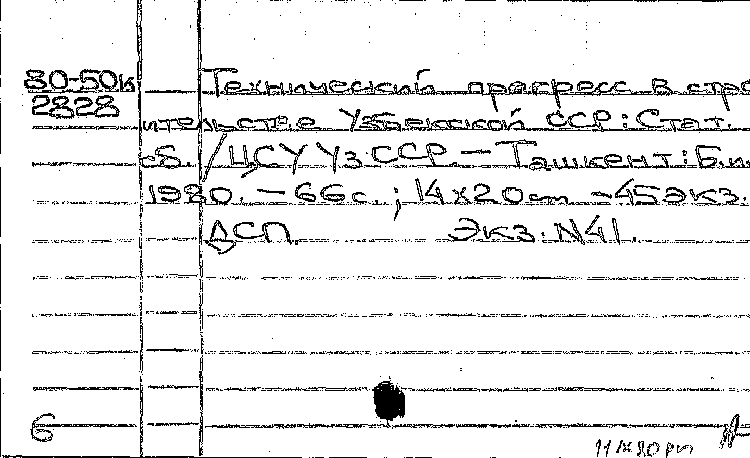 80-50к Технический прогресс в стро
2828
ительстве Узбекской ССР: Стат.
сб. /ЦСУ УзССР. — Ташкент: Б.и.
1980. — 66с.; 14х20см - 45экз.
ДСП. Экз. N41.
6